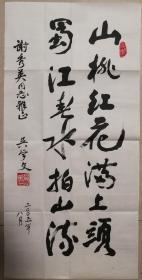 山桃红花满上頭
蜀江春水拍山流
谢秀英同志雅正
吴学文
二〇〇五年
八月